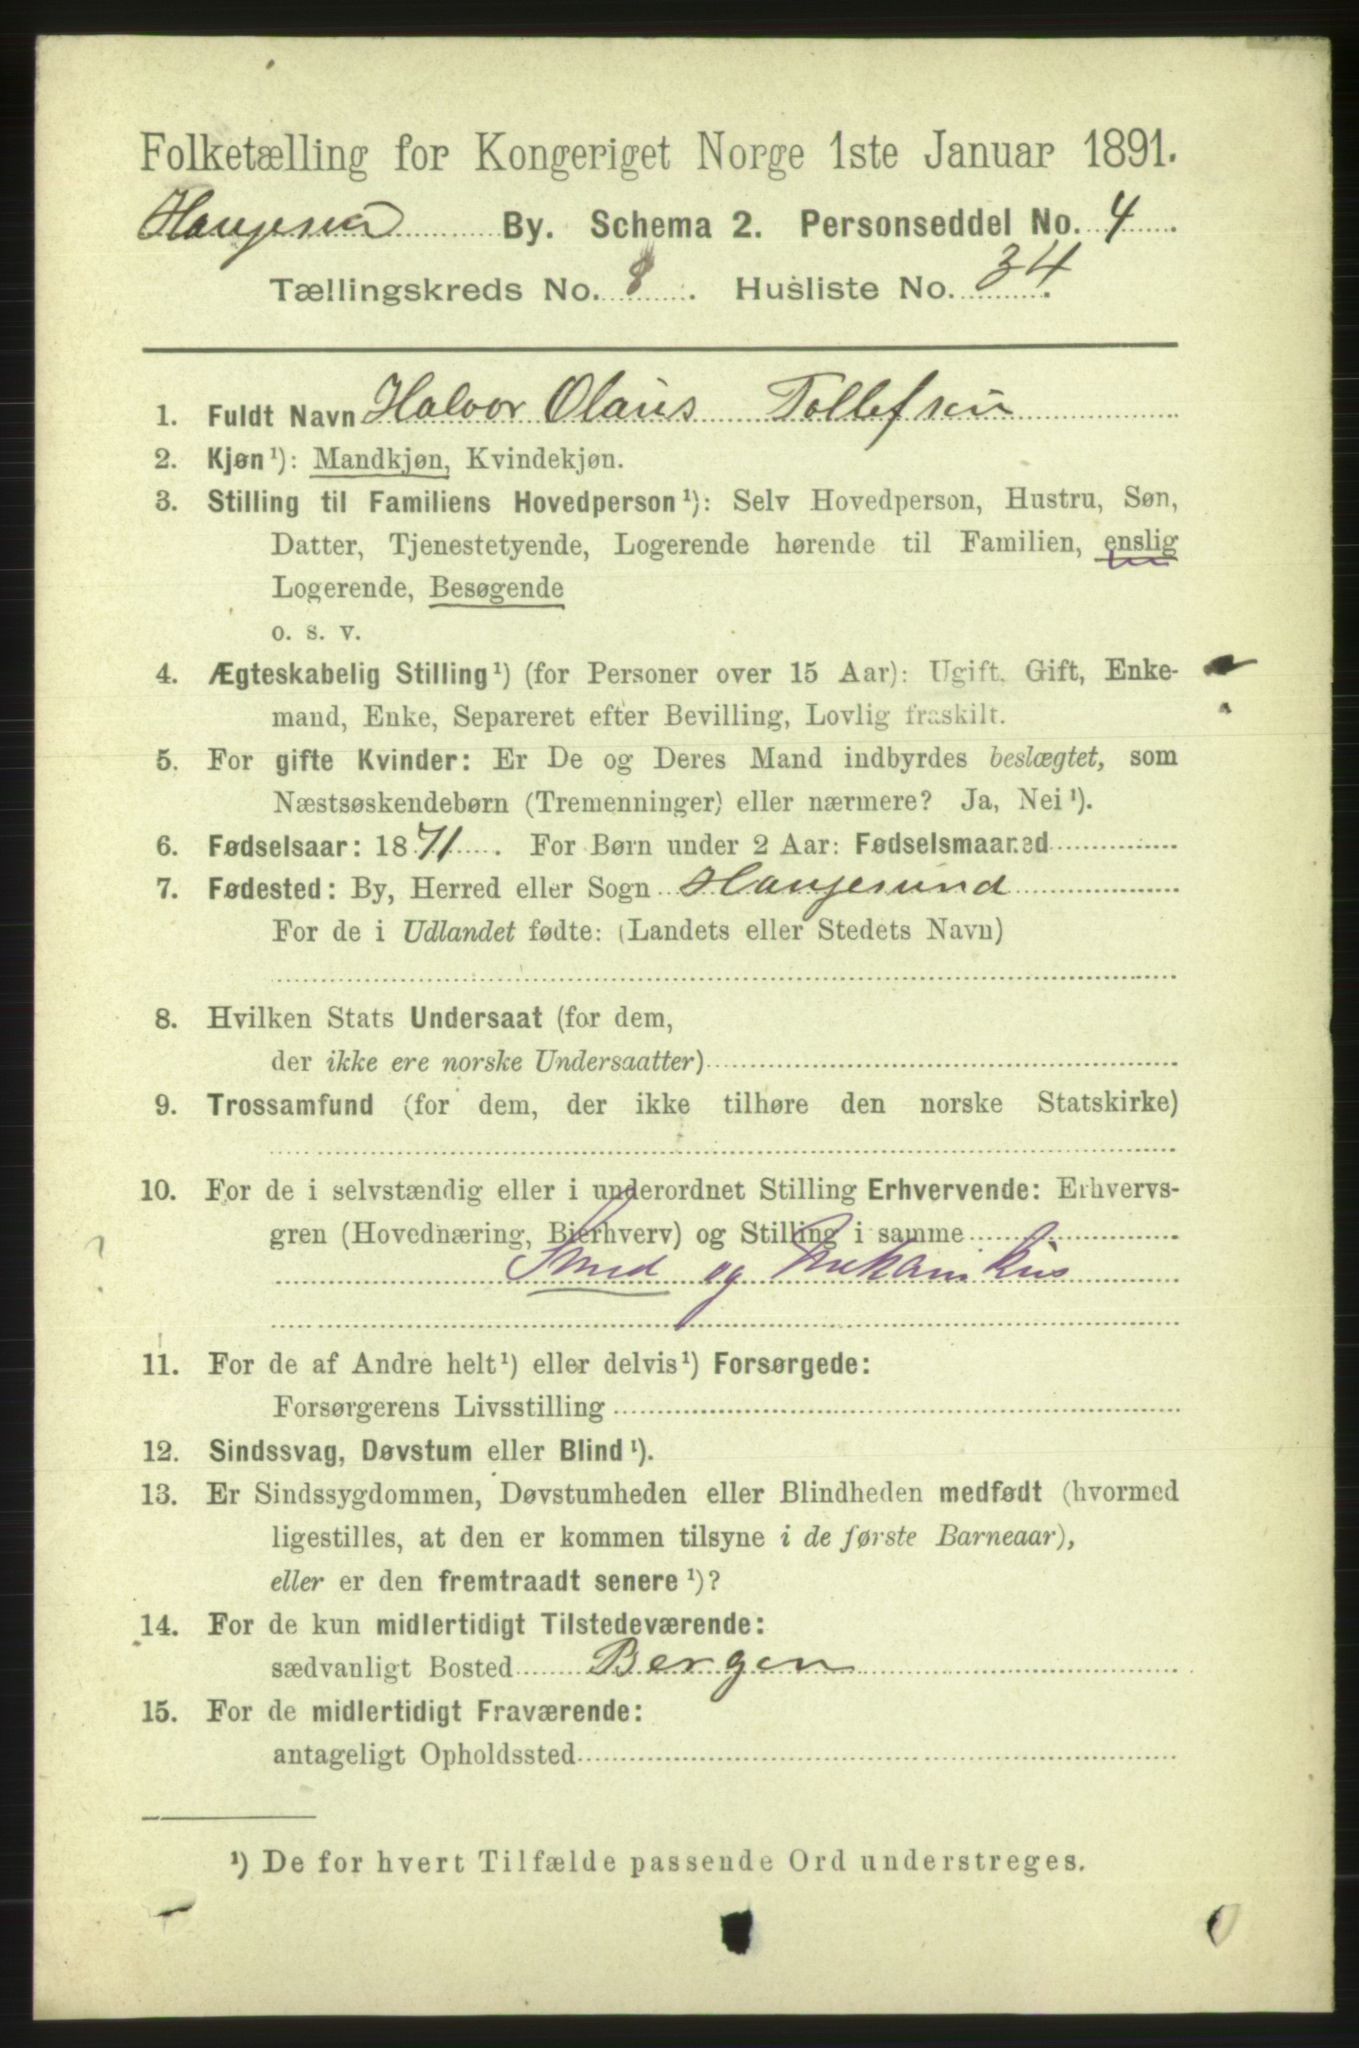 Folketælling for Kongeriget Norge 1ste Januar 1891.
Haugesund By. Schema 2. Personseddel No. 4.
Tællingskreds No. 8. Husliste No. 34.
1. Fuldt Navn Halvor Olaus Tollefsen
2. Kjøn¹): Mandkjøn, Kvindekjøn.
3. Stilling til Familiens Hovedperson¹): Selv Hovedperson, Hustru, Søn,
Datter, Tjenestetyende, Logerende hørende til Familien, enslig
Logerende, Besøgende
o. s. v.
4. Ægteskabelig Stilling¹) (for Personer over 15 Aar): Ugift, Gift, Enke-
mand, Enke, Separeret efter Bevilling, Lovlig fraskilt.
5. For gifte Kvinder: Er De og Deres Mand indbyrdes beslægtet, som
Næstsøskendebørn (Tremenninger) eller nærmere? Ja, Nei¹).
6. Fødselsaar: 1871. For Børn under 2 Aar: Fødselsmaaned
7. Fødested: By, Herred eller Sogn Haugesund
For de i Udlandet fødte: (Landets eller Stedets Navn)
8. Hvilken Stats Undersaat (for dem,
der ikke ere norske Undersaatter)
9. Trossamfund (for dem, der ikke tilhøre den norske Statskirke)
10. For de i selvstændig eller i underordnet Stilling Erhvervende: Erhvervs-
gren (Hovednæring, Bierhverv) og Stilling i samme
Smed og Mekanikus
11. For de af Andre helt¹) eller delvis¹) Forsørgede:
Forsørgerens Livsstilling
12. Sindssvag, Døvstum eller Blind¹).
13. Er Sindssygdommen, Døvstumheden eller Blindheden medfødt (hvormed
ligestilles, at den er kommen tilsyne i de første Barneaar),
eller er den fremtraadt senere¹)?
14. For de kun midlertidigt Tilstedeværende:
sædvanligt Bosted Bergen
15. For de midlertidigt Fraværende:
antageligt Opholdssted
¹) De for hvert Tilfælde passende Ord understreges.